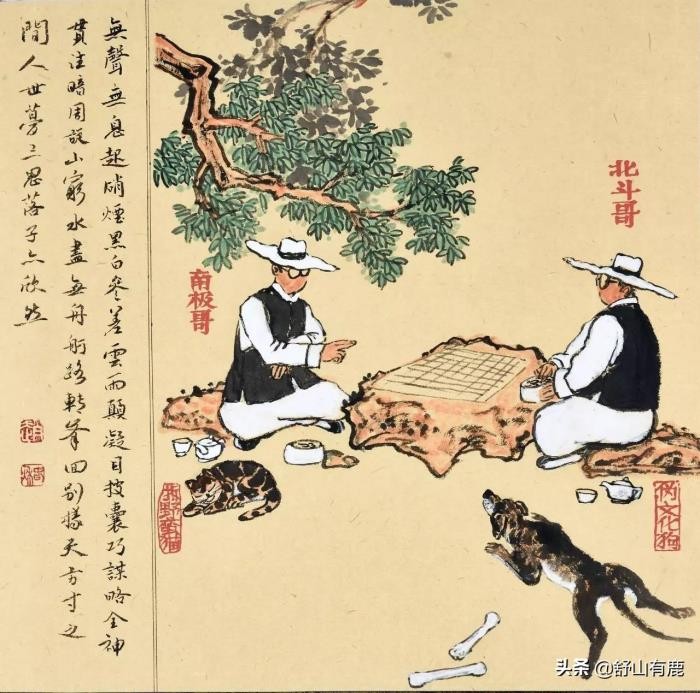 無聲無息起硝煙黑白參差雲雨顛凝目搜囊巧謀略全神
貫注暗周旋山窮水盡無舟路轉峯回別樣天方寸之
間人世夢三思落子亦欣然
北斗哥
南极哥
文化狗
头条 @舒山有鹿